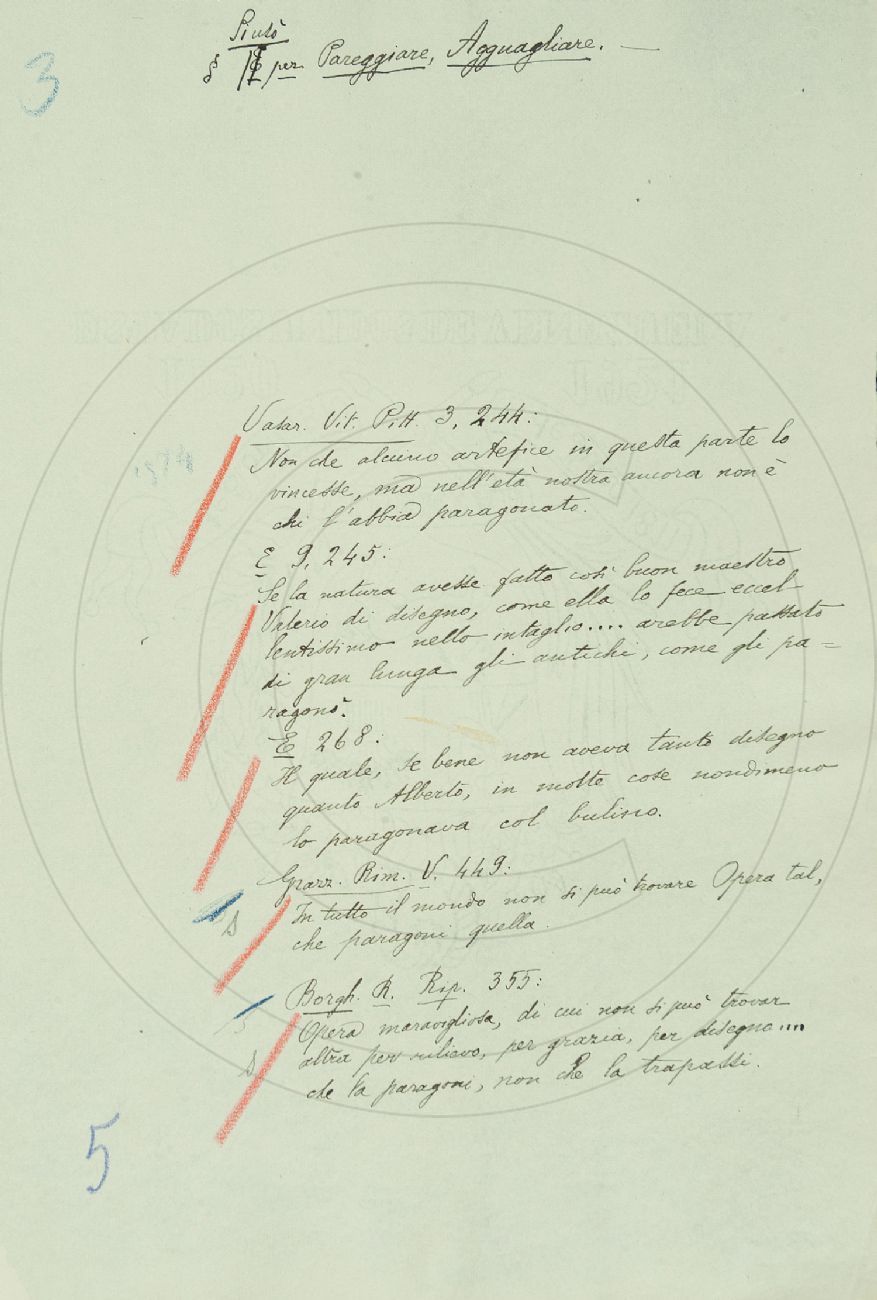 3
§ E per Pareggiare, Agguagliare. —
Vasar. Vit. Pitt. 3, 244:
Non che alcuno artefice in questa parte lo
vincesse, ma nell'età nostra ancora non è
chi l'abbia paragonato.
E 9, 245:
Se la natura avesse fatto così buon maestro
Valerio di disegno, come ella lo fece eccel-
lentissimo nello intaglio.... arebbe passato
di gran lunga gli antichi, come gli pa=
ragonò.
E 268:
Il quale, se bene non aveva tanto disegno
quanto Alberto, in molte cose nondimeno
lo paragonava col bulino.
Grazz. Rim. V. 449:
In tutto il mondo non si può trovare Opera tal,
che paragoni quella.
S
Borgh. R. Rip. 355:
Opera maravigliosa, di cui non si può trovar
altra per rilievo, per grazia, per disegno....
che la paragoni, non che la trapassi.
S
5